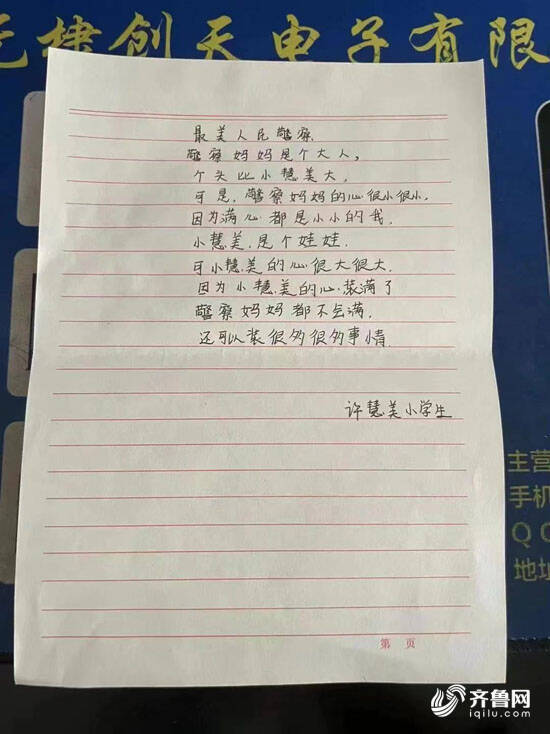 无棣创天电子有限
最美人民警察
警察妈妈是个大人,
个头比小慧美大,
可是,警察妈妈的心很小很小,
因为满心都是小小的我,
小慧美,是个娃娃,
可小慧美的心很大很大,
因为小慧美的心装满了
警察妈妈都不会满,
还可以装很多很多事情,
许慧美小学生
主营
手机
QQ
地址
第 页
齐鲁网
iqilu.com